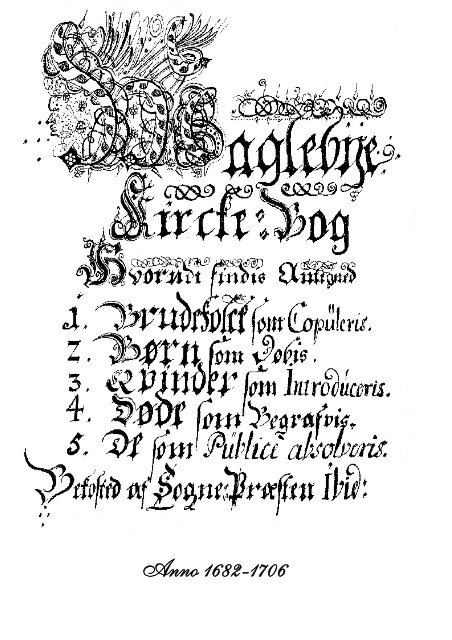 Baglebÿe
Kircke-Bog
Hvorudi findis Antigned
1. Brudefolck som Copüleris.
2. Børn som Døbis.
3. Qvinder som Introdúceris.
4. Døde som Begrafvis.
5. De som Püblicè absolveris.
Bekosted af Sogne-Præsten Ibid:
Anno 1682-1706